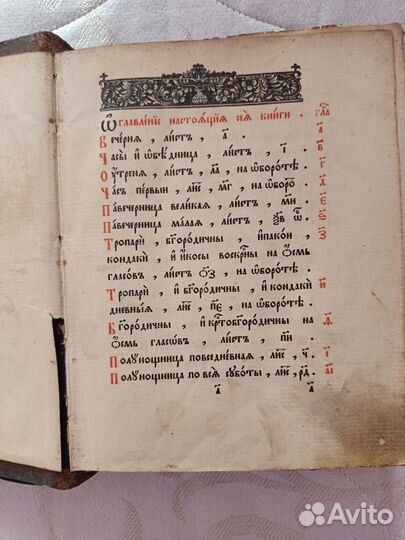 Ѡглавле́нїе настоѧ́щїѧ сеѧ̀ кни́ги . гла̑
Вече́рнѧ , ли́стъ , а҃ . а҃
Часы̀ и҆ ѡ҆бѣ́дница , ли́стъ , і҃ . в҃
Ѹ҆́тренѧ , ли́стъ , ла҃ , на ѡ҆боро́тѣ . г҃
Ча́съ пе́рвыи , ли́с , мг҃ , на ѡ҆боро́ . д҃
Павече́рница вели́каѧ , ли́стъ , мн҃ . є҃
Павече́рница ма́лаѧ , ли́стъ ,
Тропарѝ , бг҃оро́дичны , и҆пакоѝ , з҃
кондакѝ , и҆ и҆́косы воскр҃ны на ѻ҆́смь
гласо́въ , ли́стъ ѻ҃з , на ѡ҆боро́тѣ .
Тропарѝ , и҆ бг҃оро́дичны , и҆ кондакѝ и҃
дневны́ѧ , ли́с , пє҃ , на ѡ҆боро́тѣ .
Бг҃оро́дичны , и҆ крⷭ҇тобг҃оро́дичны на ѳ҃
ѻ҆́смь гласо́въ , ли́стъ , пи҃ .
Полу́нощница повседне́внаѧ , ли́с , ч҃ . і҃
Полу́нощница по всѧ̀ субо́ты , ли́с , рд҃ . аі҃
а҃ а҃
Avito